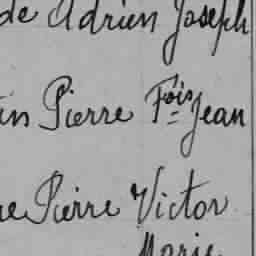 de Adrien Joseph
in Pierre Fois Jean
ne Pierre Victor
Marie